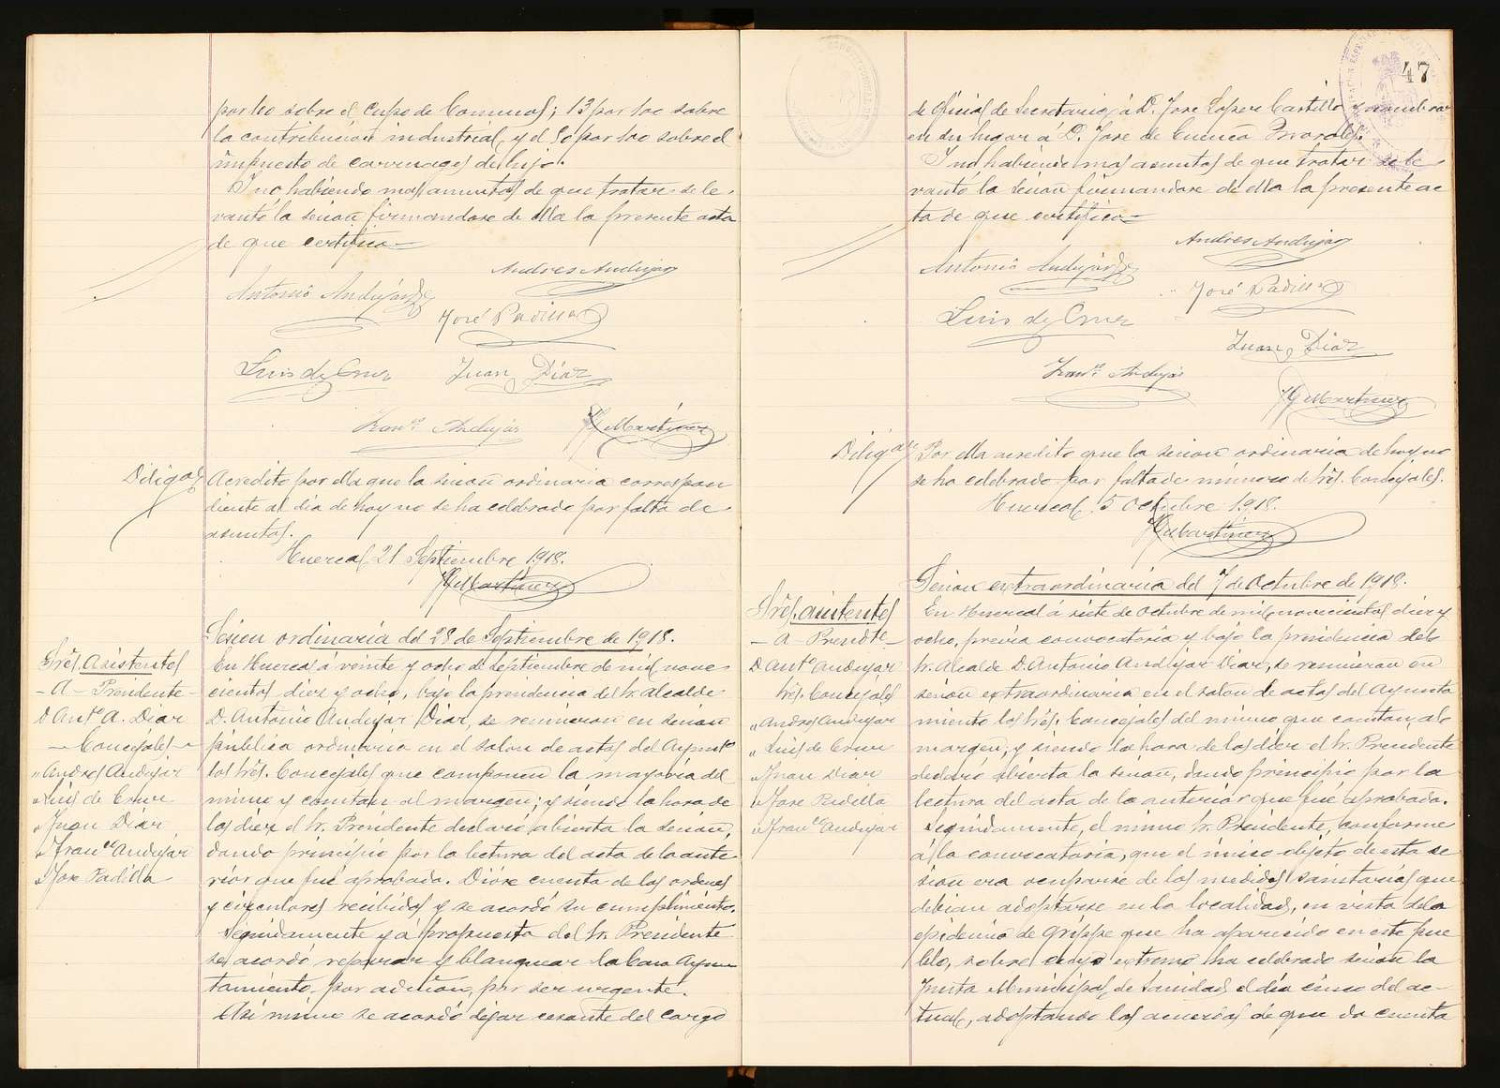 por 100 sobre el cupo de Consumos; 13 por 100 sobre
la contribucion industrial, y el 50 por 100 sobre el
impuesto de carruages de lujo.
Y no habiendo mas asuntos de que tratar se le-
vantó la sesion firmandose de ella la presente acta
de que certifico=
Andres Andujar
Antonio Andujar
José Padilla
Luis de Cruz
Juan Díaz
Franco Andujar
Martinez
Diligª
Acredito por ella que la sesion ordinaria correspon
diente al dia de hoy no se ha celebrado por falta de
asuntos.
Huercal 21 Septiembre 1918.
Martinez
Sesion ordinaria del 28 de Septiembre de 1918.
Srēs. Asistentes
- A - Presidente -
D Antº A. Diaz
- Concejales -
" Andres Andujar
" Luis de Cruz
" Juan Diaz
" Franco Andujar
" Jose Padilla
En Huercal á veinte y ocho de Septiembre de mil nove-
cientos diez y ocho, bajo la presidencia del Sr. Alcalde
D. Antonio Andujar Diaz, se reunieron en sesion
pública ordinaria en el salon de actos del Ayuntº
los Srēs. Concejales que componen la mayoria del
mismo y constan al margen; y siendo la hora de
las diez el Sr. Presidente declaró abierta la sesion,
dando principio por la lectura del acta de la ante-
rior que fué aprobada. Dióse cuenta de las ordenes
y circulares recibidas y se acordó su cumplimiento.
Seguidamente y á propuesta del Sr. Presidente
se acordó reparar y blanquear la Casa Ayun-
tamiento, por admon, por ser urgente.
Asi mismo se acordó dejar cesante del cargo
47
de Oficial de Secretaria, á D. Jose Lopez Castillo y nombrar
en su lugar a D. Jose de Cuenca Morales.
Y no habiendo mas asuntos de que tratar se le-
vantó la sesion firmandose de ella la presente ac
ta de que certifico=
Andres Andujar
Antonio Andujar
José Padilla
Luis de Cruz
Juan Diaz
Franco Andujar
Martinez
Diligª
Por ella acredito que la sesion ordinaria de hoy no
se ha celebrado por falta de número de Srēs. Concejales.
Huercal 5 Octubre 1918.
Martinez
Sesion extraordinaria del 7 de Octubre de 1918.
Srēs. asistentes
- A - Presidte -
D Antº Andujar
Srēs. Concejales
" Andres Andujar
" Luis de Cruz
" Juan Diaz
" Jose Padilla
" Franco Andujar
En Huercal á siete de Octubre de mil novecientos diez y
ocho, previa convocatoria y bajo la presidencia del
Sr. Alcalde D. Antonio Andujar Diaz, se reunieron en
sesion extraordinaria en el salon de actos del Ayunta
miento los Srēs. Concejales del mismo que constan al
margen; y siendo la hora de las diez el Sr. Presidente
declaró abierta la sesion, dando principio por la
lectura del acta de la anterior que fué aprobada.
Seguidamente, el mismo Sr. Presidente, conforme
á la convocatoria, que el único objeto de esta se
sion era ocuparse de las medidas sanitarias que
debian adoptarse en la localidad, en vista de la
epidemia de grippe que ha aparecido en este pue
blo, sobre cuyo extremo ha celebrado sesion la
Junta Municipal de Sanidad, el dia cinco del ac-
tual, adoptando los acuerdos de que da cuenta